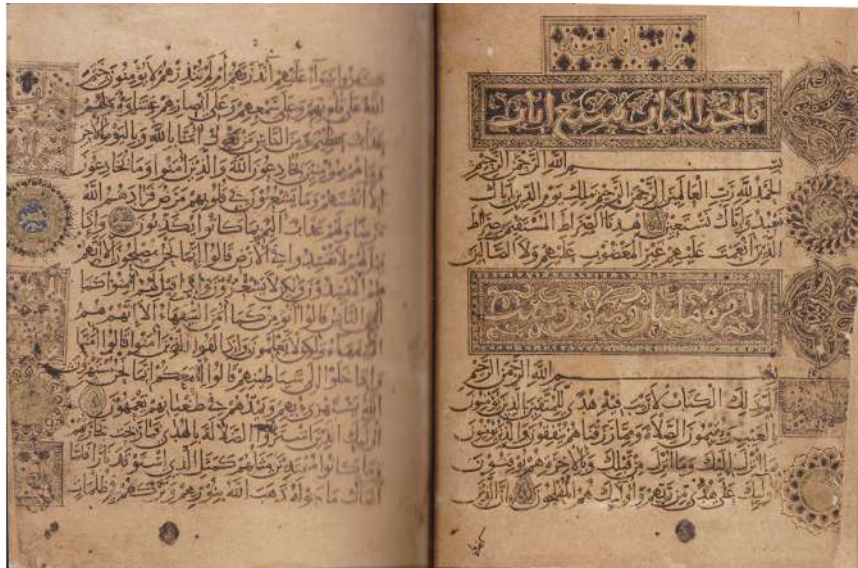 فاتحة الكتاب سبع ايات
بسم الله الرحمن الرحيم
الحمد لله رب العالمين الرحمن الرحيم ملك يوم الدين اياك
نعبد واياك نستعين اهدنا الصراط المستقيم صراط
الذين انعمت عليهم غير المغضوب عليهم ولا الضالين
البقرة مائتان
بسم الله الرحمن الرحيم
الم ذلك الكتاب لا ريب فيه هدى للمتقين الذين يؤمنون
بالغيب ويقيمون الصلاة ومما رزقناهم ينفقون والذين يؤمنون
بما انزل اليك وما انزل من قبلك وبالاخرة هم يوقنون
اولئك على هدى من ربهم واولئك هم المفلحون ان الذين
كفروا سواء عليهم أانذرتهم أم لم تنذرهم لا يؤمنون ختم
الله على قلوبهم وعلى سمعهم وعلى أبصارهم غشاوة ولهم
عذاب عظيم ومن الناس من يقول آمنا بالله وباليوم الآخر
وما هم بمؤمنين يخادعون الله والذين آمنوا وما يخادعون
إلا أنفسهم وما يشعرون في قلوبهم مرض فزادهم الله
مرضا ولهم عذاب أليم بما كانوا يكذبون وإذا
قيل لهم لا تفسدوا في الأرض قالوا إنما نحن مصلحون ألا إنهم
هم المفسدون ولكن لا يشعرون وإذا قيل لهم آمنوا كما
آمن الناس قالوا أنؤمن كما آمن السفهاء ألا إنهم هم
السفهاء ولكن لا يعلمون وإذا لقوا الذين آمنوا قالوا آمنا
وإذا خلوا إلى شياطينهم قالوا إنا معكم إنما نحن مستهزؤن
الله يستهزئ بهم ويمدهم في طغيانهم يعمهون
أولئك الذين اشتروا الضلالة بالهدى فما ربحت تجارتهم
وما كانوا مهتدين مثلهم كمثل الذي استوقد نارا فلما
أضاءت ما حوله ذهب الله بنورهم وتركهم في ظلمات